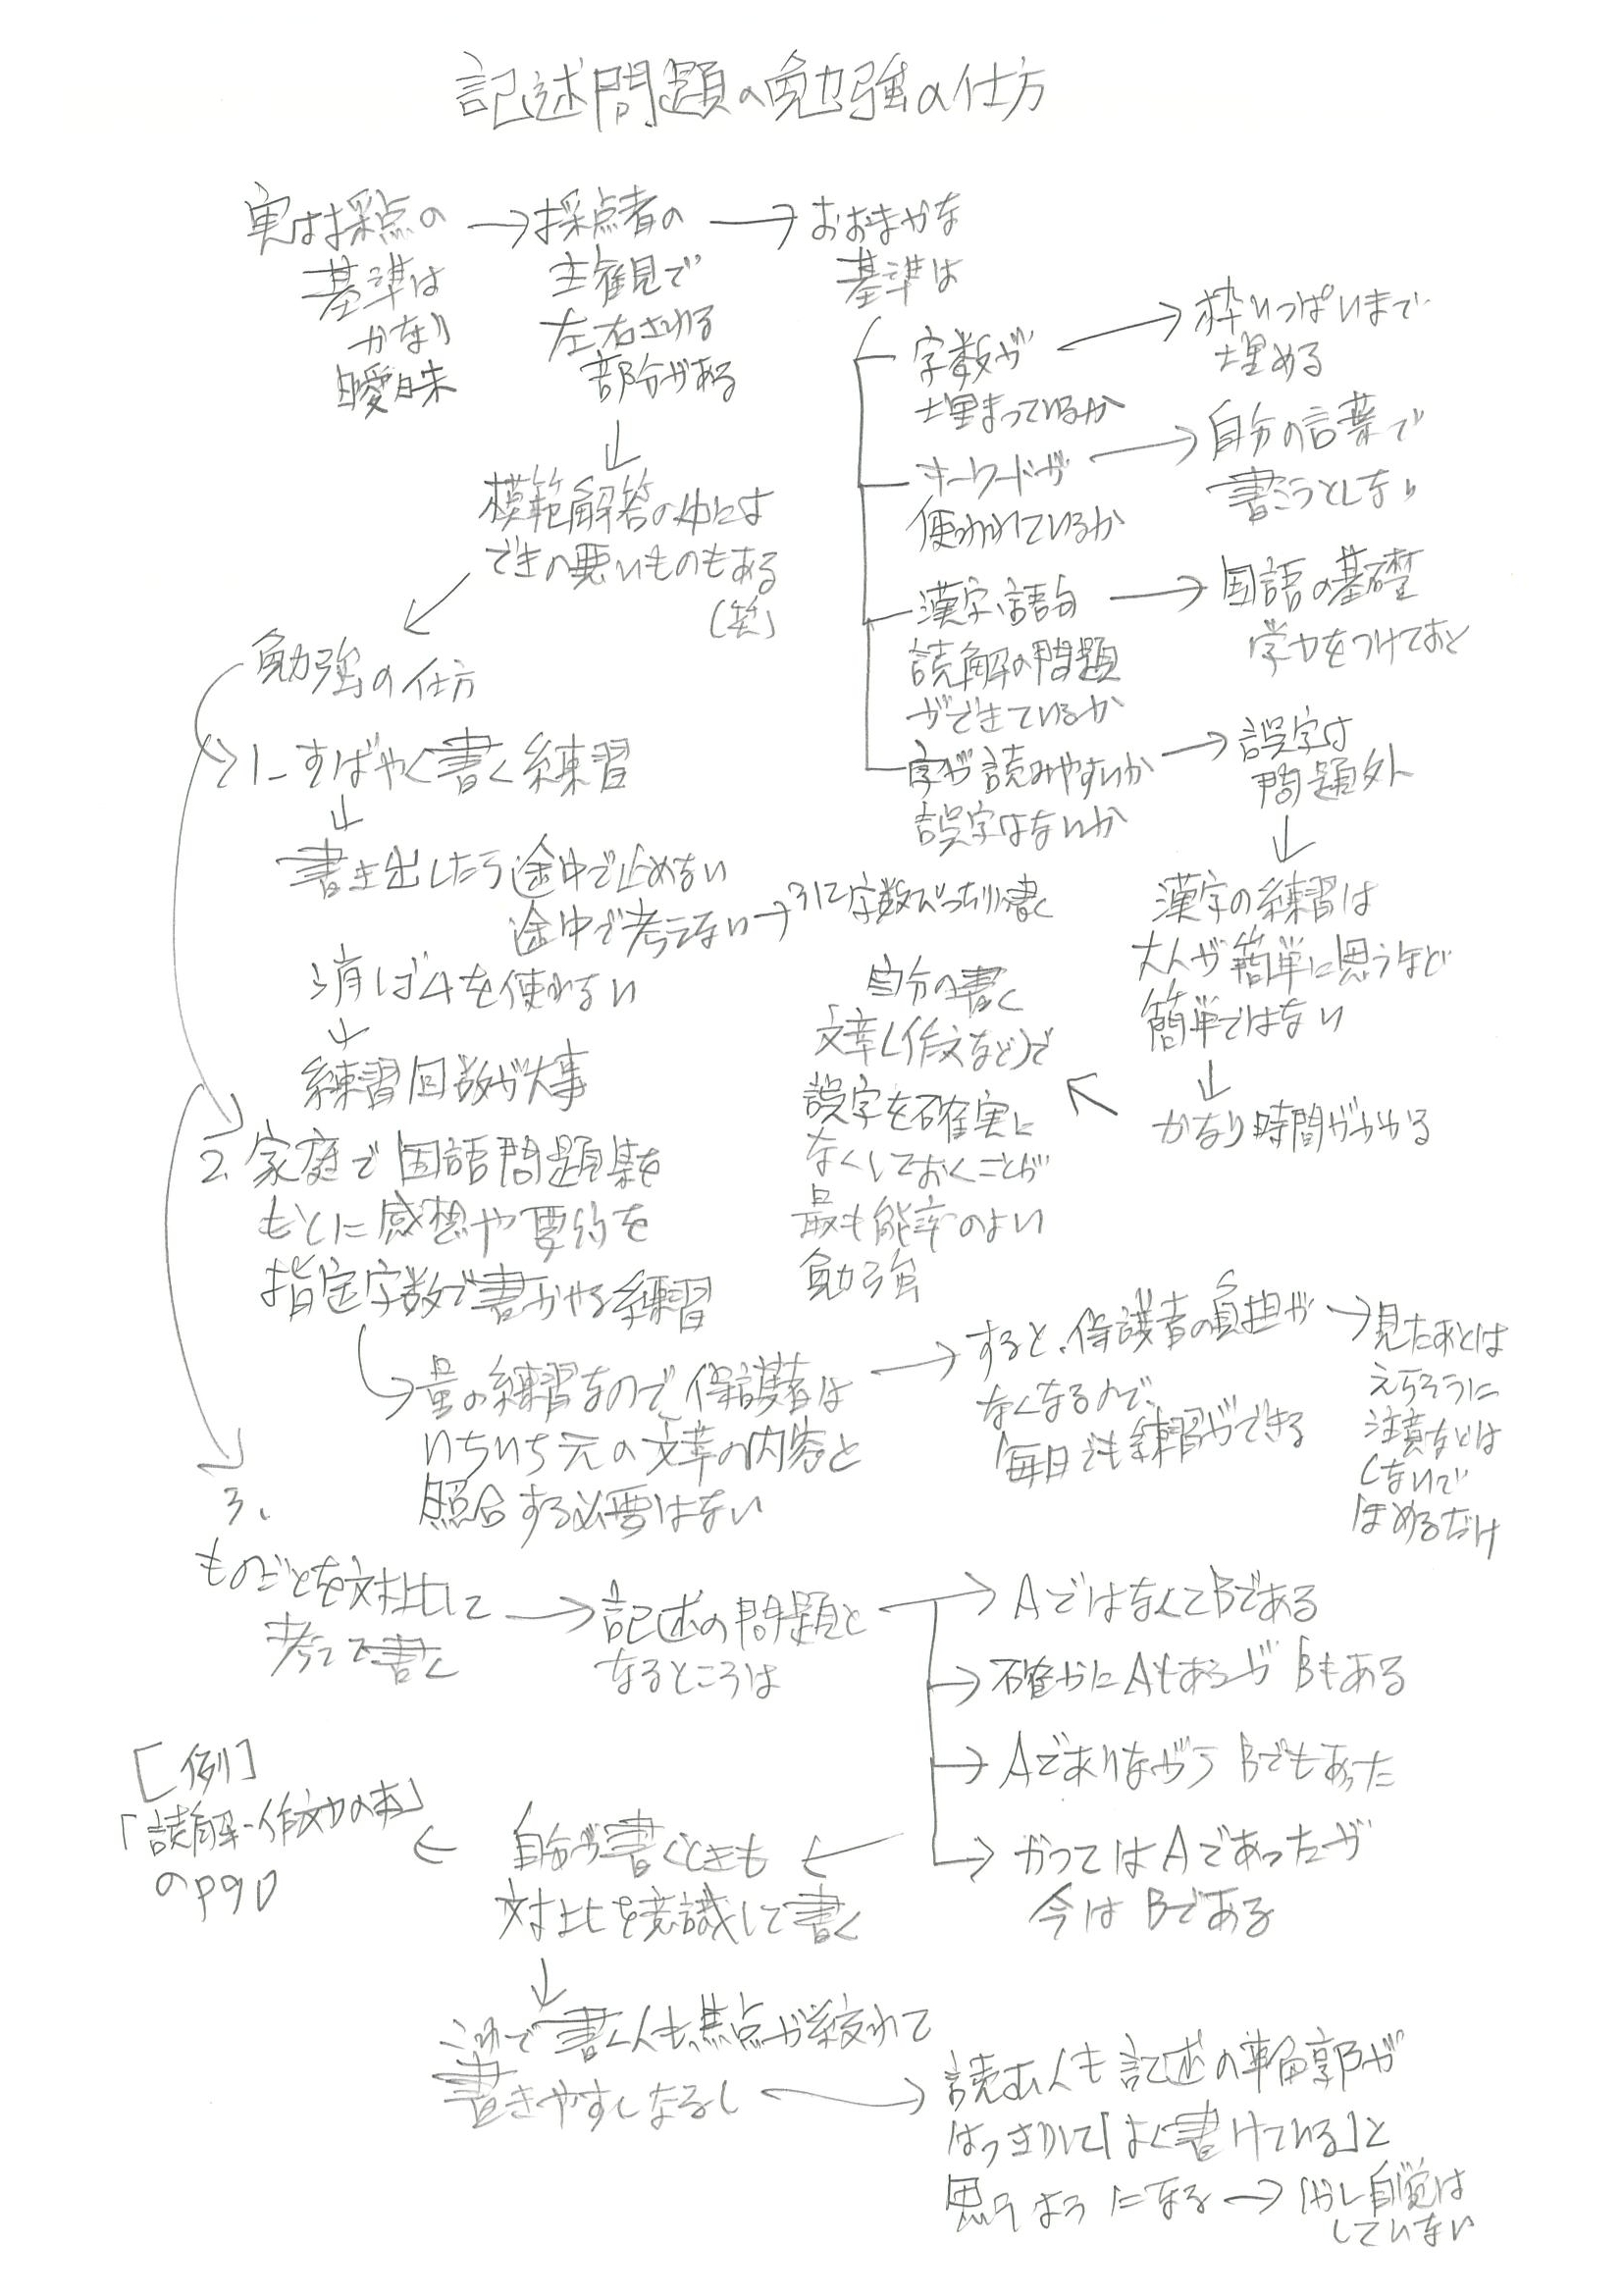 記述問題の勉強の仕方
実は採点の
基準は
かなり
曖昧
採点者の
主観で
左右される
部分がある
模範解答の中には
できの悪いものもある
(笑)
おおまかな
基準は
字数が
埋まっているか
枠いっぱいまで
埋める
キーワードが
使われているか
自分の言葉で
書こうとしない
漢字、語句
読解の問題
ができているか
国語の基礎
学力をつけておく
字が読みやすいか
誤字はないか
誤字は
問題外
漢字の練習は
大人が簡単に思うほど
簡単ではない
かなり時間がかかる
自分の書く
文章(作文など)で
誤字を確実に
なくしておくことが
最も能率のよい
勉強
勉強の仕方
1. すばやく書く練習
書き出したら途中で止めない
途中で考えない
字数ぴったりに書く
消しゴムを使わない
練習回数が大事
2. 家庭で国語問題集を
もとに感想や要約を
指定字数で書かせる練習
量の練習なので保護者は
いちいち元の文章の内容と
照合する必要はない
すると、保護者の負担が
なくなるので、
毎日でも練習ができる
見たあとは
えらそうに
注意などは
しないで
ほめるだけ
3、
ものごとを対比して
考えて書く
記述の問題と
なるところは
AではなくてBである
確かにAもあるがBもある
AでありながらBでもあった
かつてはAであったが
今はBである
自分が書くときも
対比を意識して書く
[例]
「読解・作文力の本」
のP90
これで書く人も焦点が絞れて
書きやすくなるし
読む人も記述の輪郭が
はっきりして「よく書けている」と
思うようになる
しかし自覚は
していない